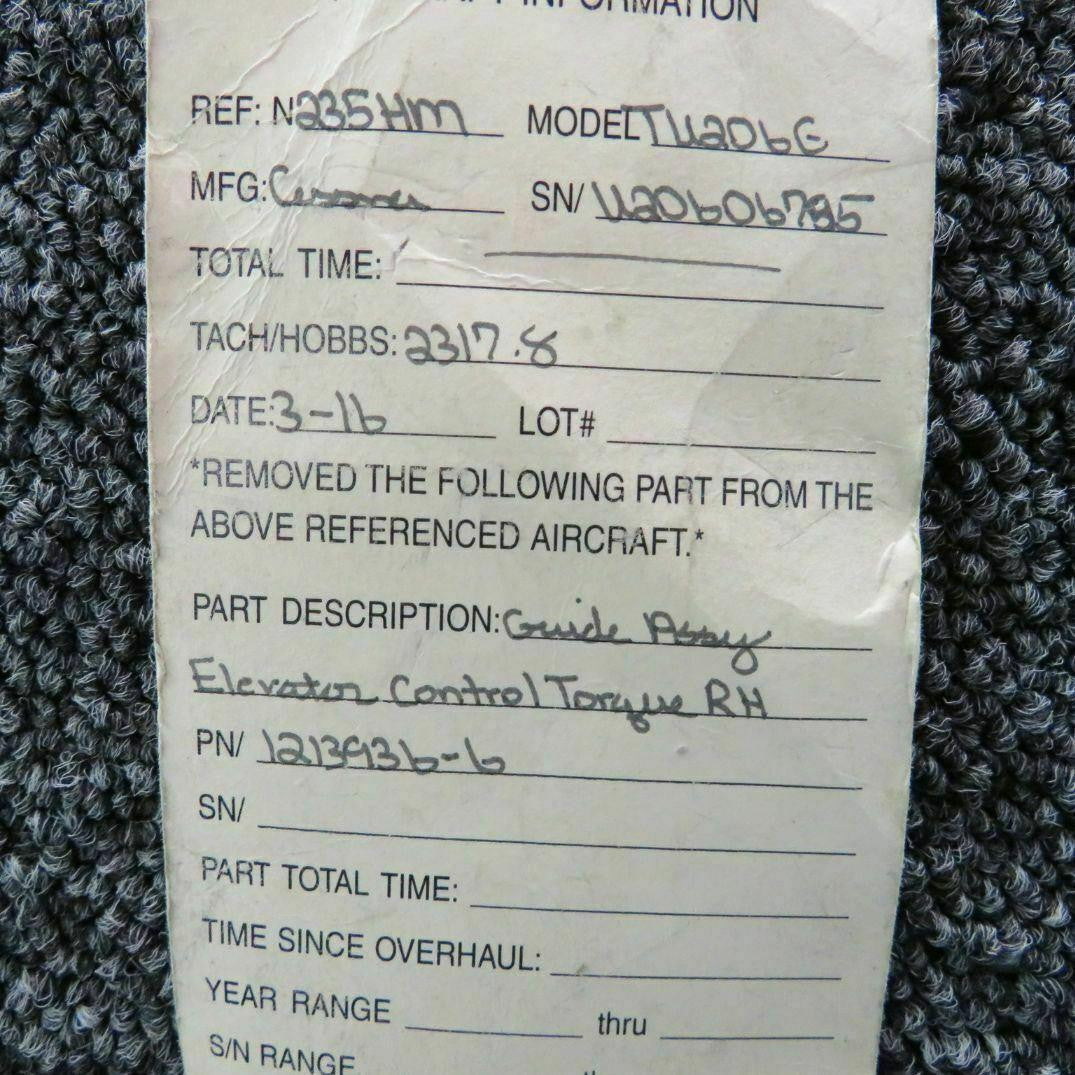 INFORMATION
REF: N235HM MODEL TU206G
MFG: Cessna SN/ U20606785
TOTAL TIME: —
TACH/HOBBS: 2317.8
DATE: 3-16 LOT#
*REMOVED THE FOLLOWING PART FROM THE
ABOVE REFERENCED AIRCRAFT.*
PART DESCRIPTION: Guide Assy
Elevator Control Torque RH
PN/ 1213936-6
SN/
PART TOTAL TIME:
TIME SINCE OVERHAUL:
YEAR RANGE thru
S/N RANGE